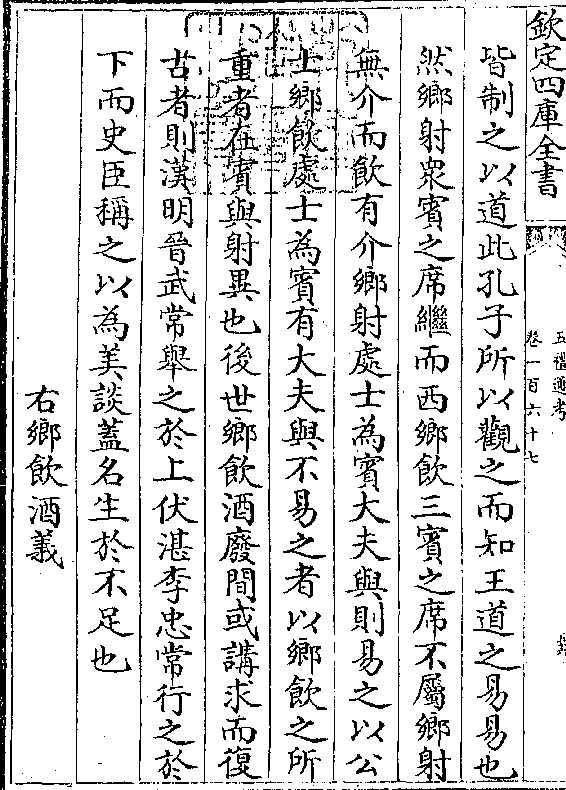 欽定四庫全書
五禮通考
卷一百六十七
皆制之以道此孔子所以觀之而知王道之易易也
然鄉射衆賓之席繼而西鄉飲三賓之席不屬鄉射
無介而飲有介鄉射處士為賓大夫與則易之以公
士鄉飲處士為賓有大夫與不易之者以鄉飲之所
重者在賓與射異也後世鄉飲酒廢間或講求而復
古者則漢明晉武常舉之於上伏湛李忠常行之於
下而史臣稱之以為美談蓋名生於不足也
右鄉飲酒義